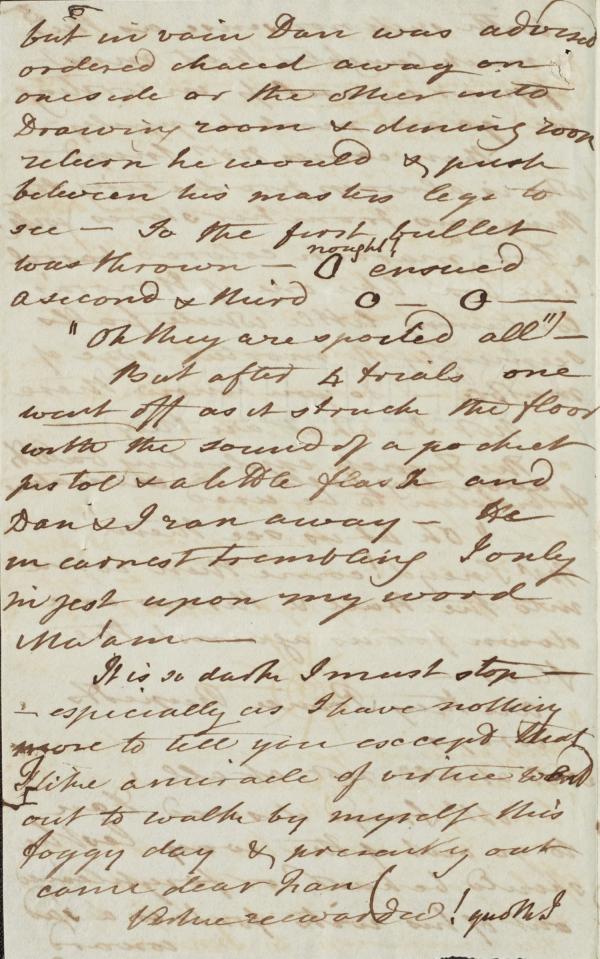 but in vain Dan was advised
ordered chaced away on
one side or the other into
Drawing room & dining room
return he would & push
between his masters legs to
see — So the first bullet
nought!
was thrown — O ensued
a second & third O — O —
"Oh they are spoiled all"! —
But after 4 trials one
went off as it struck the floor
with the sound of a pocket
pistol & a little flash and
Dan & I ran away — He
in earnest trembling I only
in jest upon my word
Ma'am —
It is so dark I must stop —
— especially as I have nothing
more to tell you except that
I like a miracle of virtue went
out to walk by myself this
foggy day & presently out
came dear Fan (
Virtue rewarded! quoth I